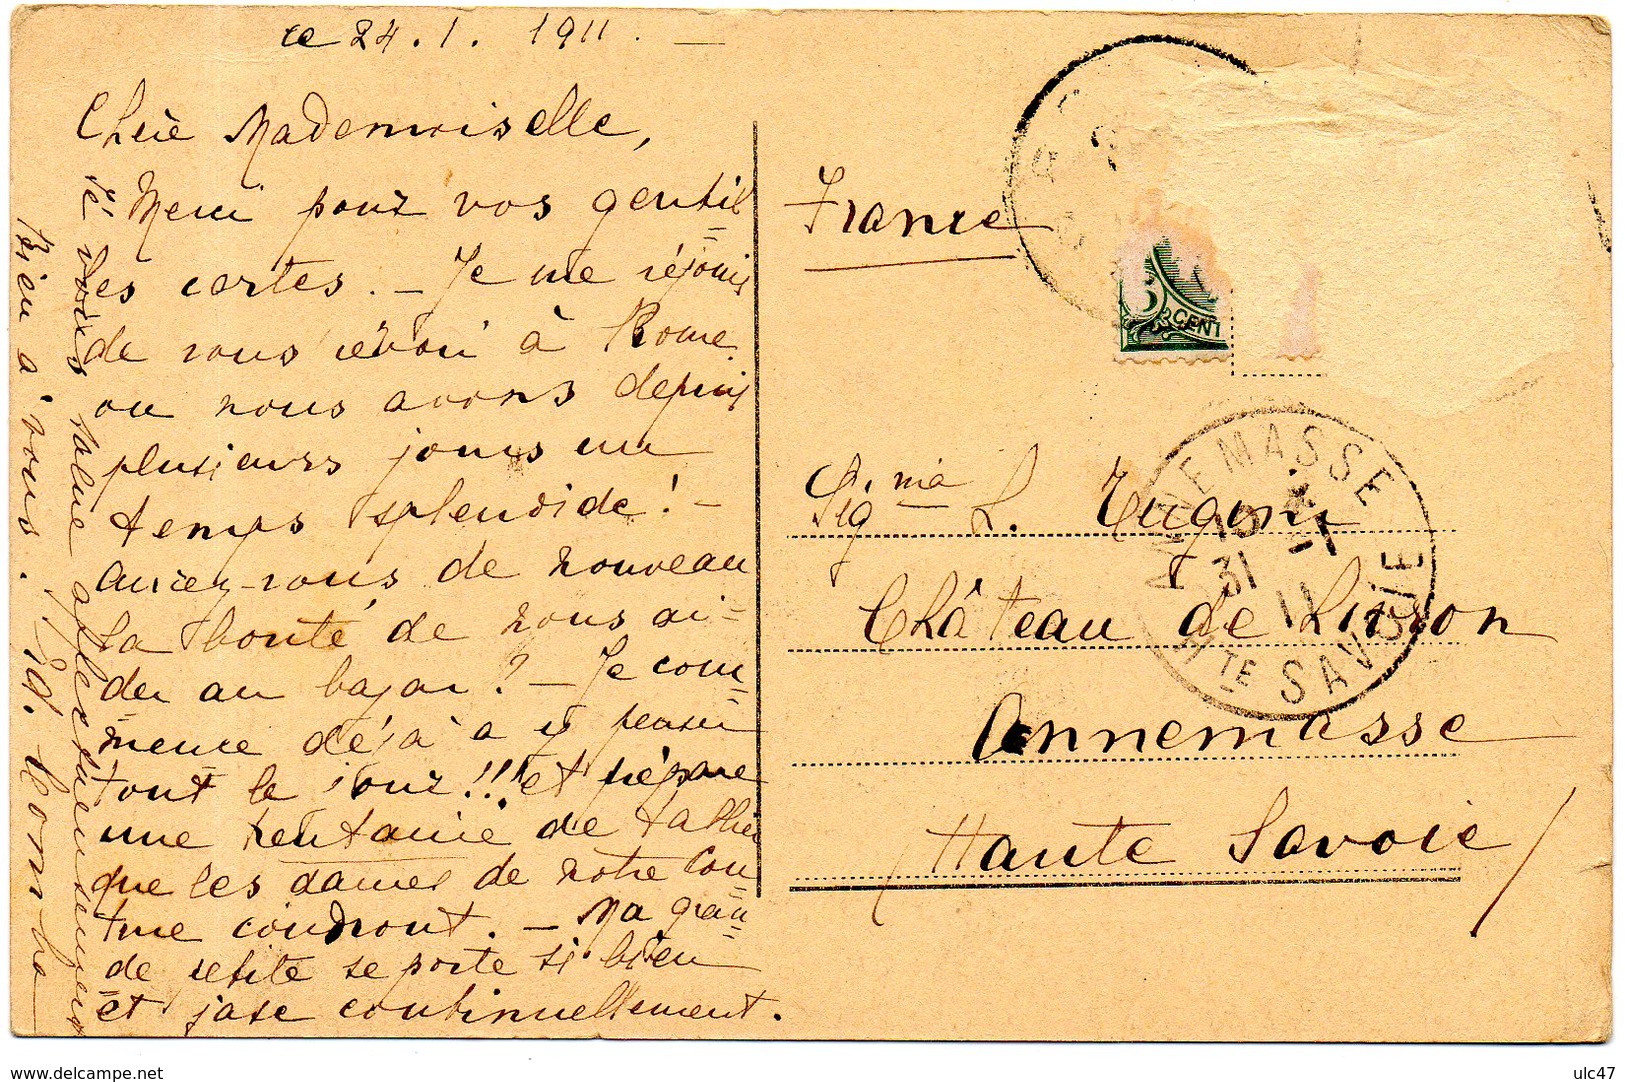 ce 24.1.1911. —
Chère Mademoiselle,
Merci pour vos gentil=
les cartes. — Je me réjouis
de vous revoir à Rome
ou nous avons depuis
plusieurs jours un
temps splendide! —
Aurez-vous de nouveau
la bonté de nous ai=
der au bazar? — Je com=
=mence déjà à y penser
tout le jour!!! et prépare
une trentaine de tablier
que les dames de notre Cou=
ture coudront. — Ma gran=
de petite se porte si bien
et jase continuellement.
Je vous salue affectueusement
Bien à vous. Ed.
France
Sig.ma L.
Château de
Annemasse
Haute Savoie
CENT
ANNEMASSE
31
11
HTE SAVOIE
delcampe.net
ulc47